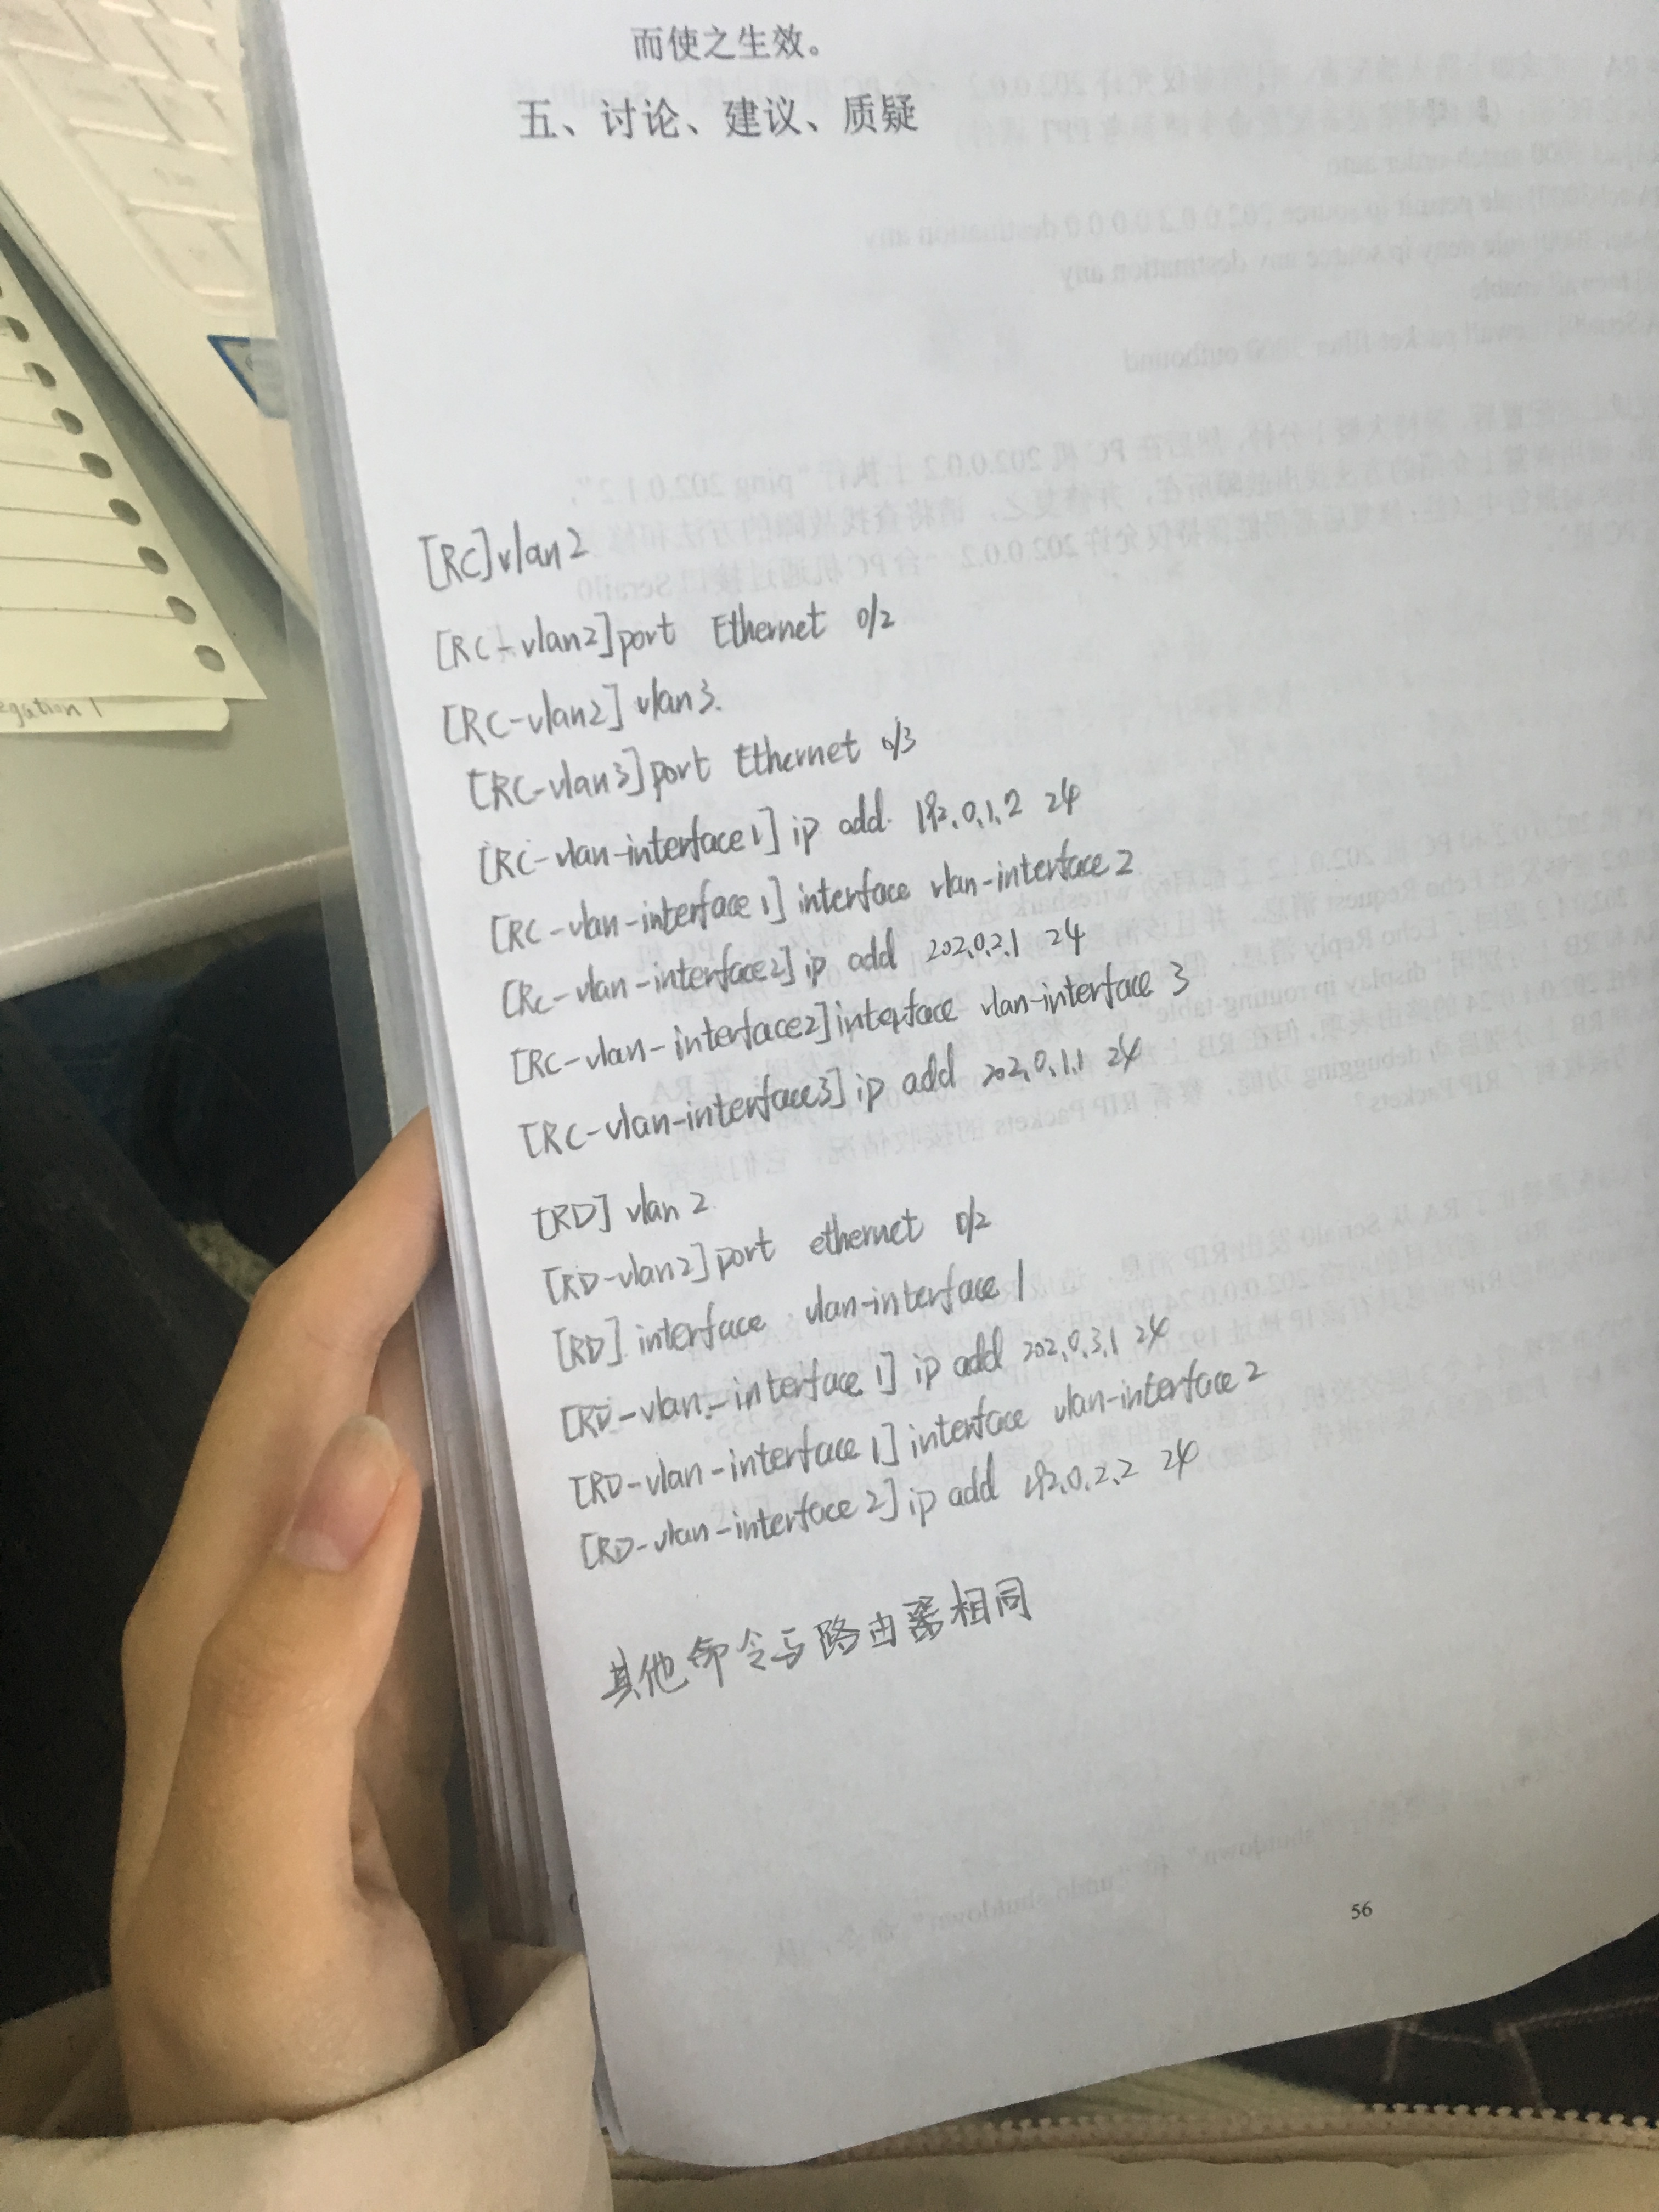 而使之生效。
五、讨论、建议、质疑
[RC]vlan2
[RC-vlan2]port Ethernet 0/2
[RC-vlan2] vlan3.
[RC-vlan3]port Ethernet 0/3
[RC-vlan-interface1] ip add 192.0.1.2 24
[RC-vlan-interface1] interface vlan-interface2
[RC-vlan-interface2] ip add 202.0.2.1 24
[RC-vlan-interface2]interface vlan-interface 3
[RC-vlan-interface3] ip add 202.0.1.1 24
[RD] vlan 2
[RD-vlan2]port ethernet 0/2
[RD] interface vlan-interface 1
[RD-vlan-interface1] ip add 202.0.3.1 24
[RD-vlan-interface1] interface vlan-interface2
[RD-vlan-interface2] ip add 192.0.2.2 24
其他命令与路由器相同
56
egation 1